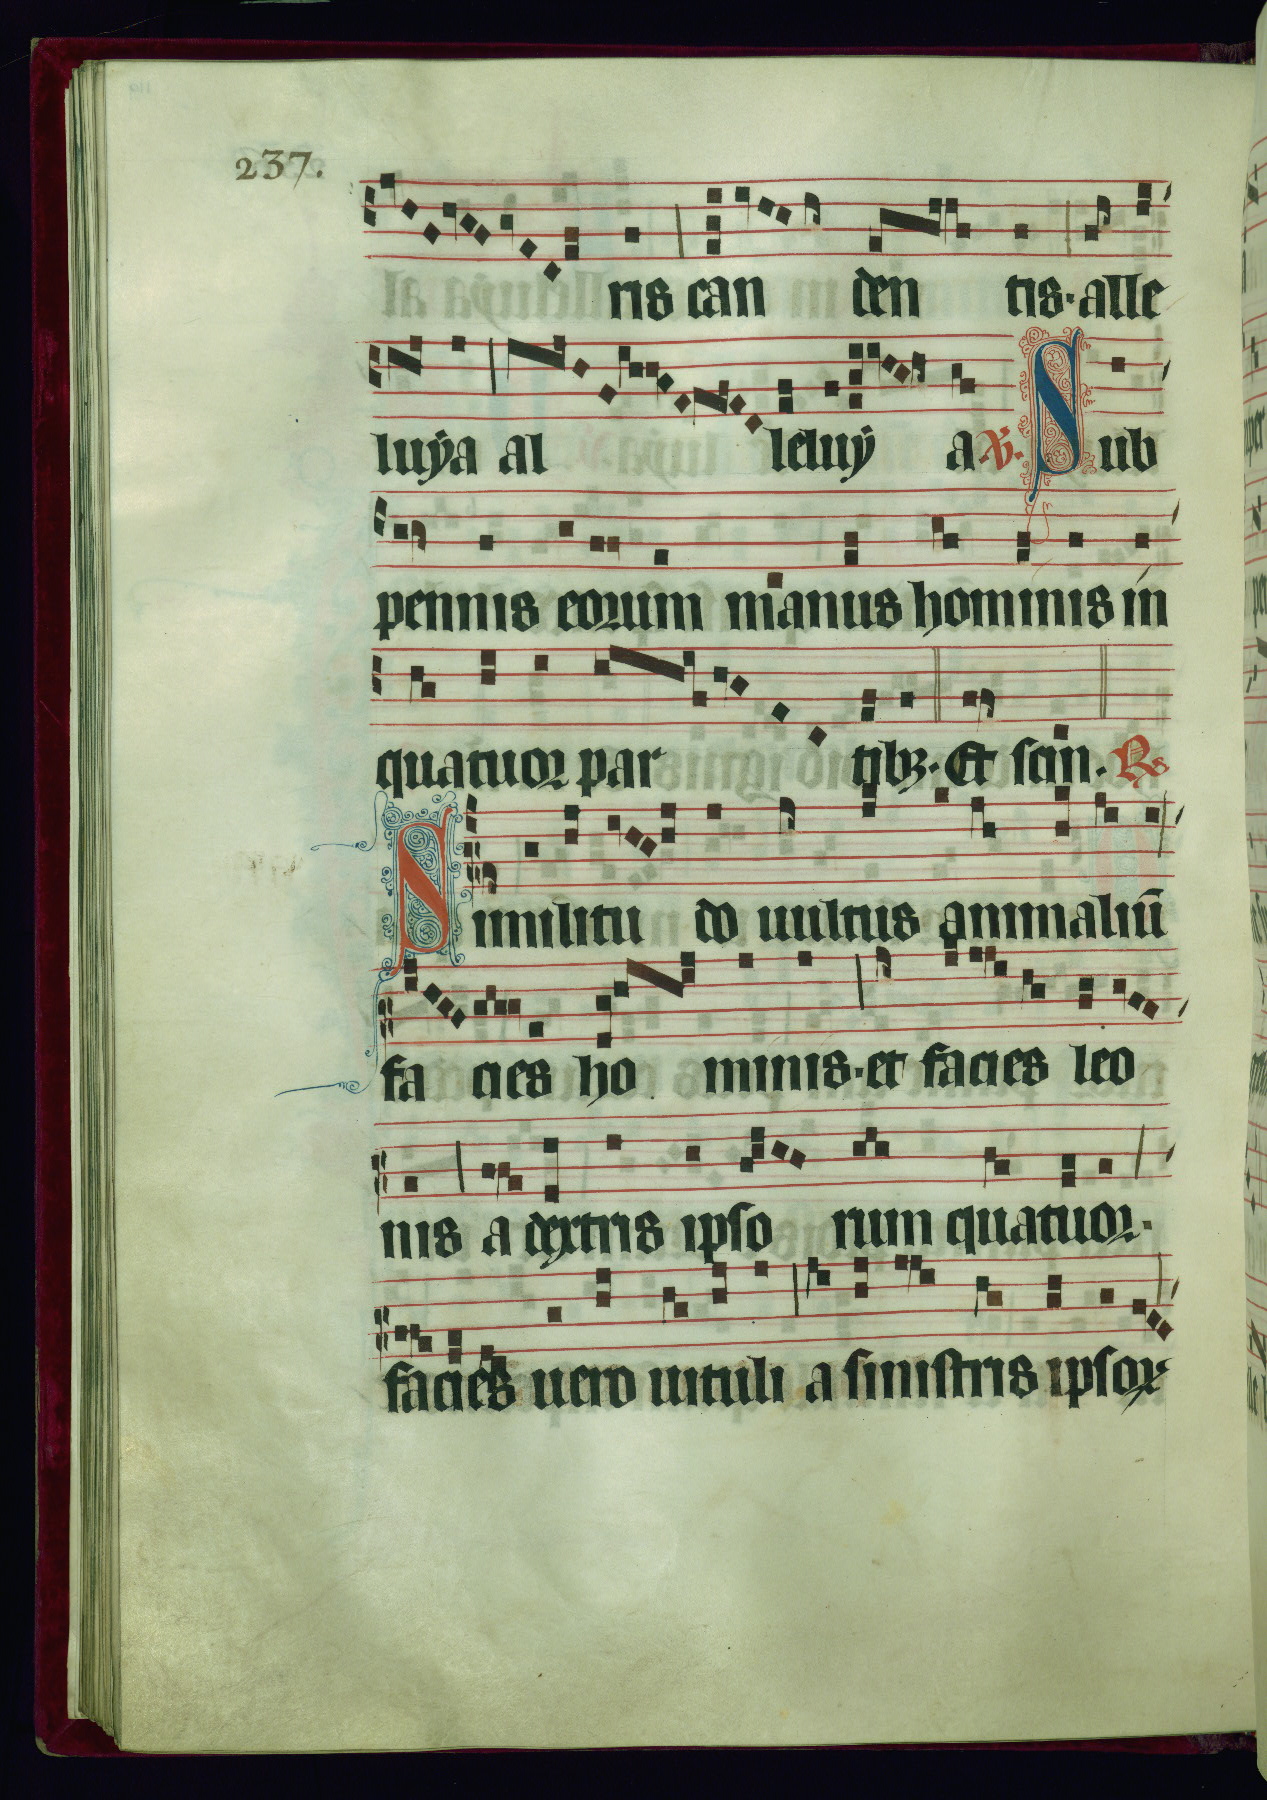 237.
ris can den tis · alle
luÿa al leluÿ a ℣. Sub
pennis eoꝝum manus hominis in
quatuoꝛ par tibꝫ · Et scin . ℟
Similitu do uultus animaliū
fa cies ho minis · et facies leo
nis a dextris ipso rum quatuoꝛ ·
facies uero uituli a sinistris ipsoꝝ